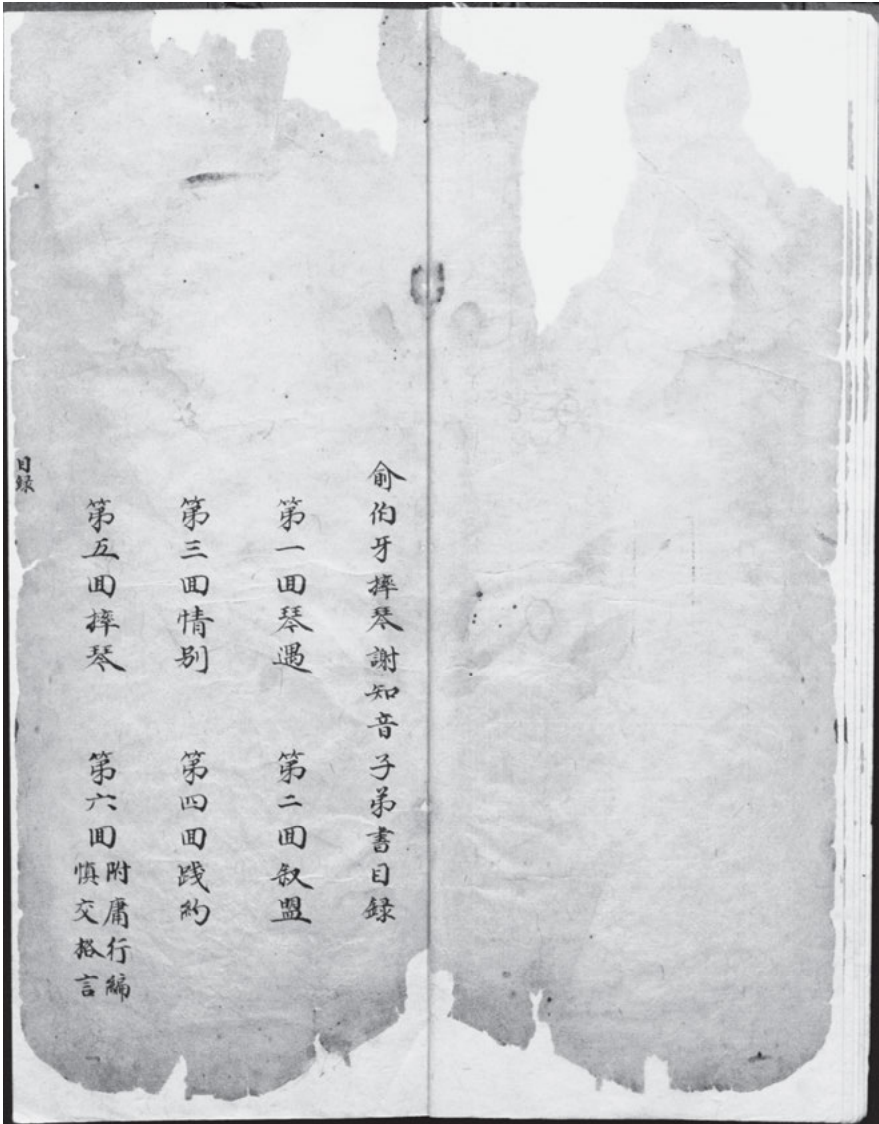 俞伯牙摔琴謝知音子弟書目錄
第一囬琴遇
第二囬敘盟
第三囬情别
第四囬踐約
第五囬摔琴
第六囬附庸行編慎交格言
目録